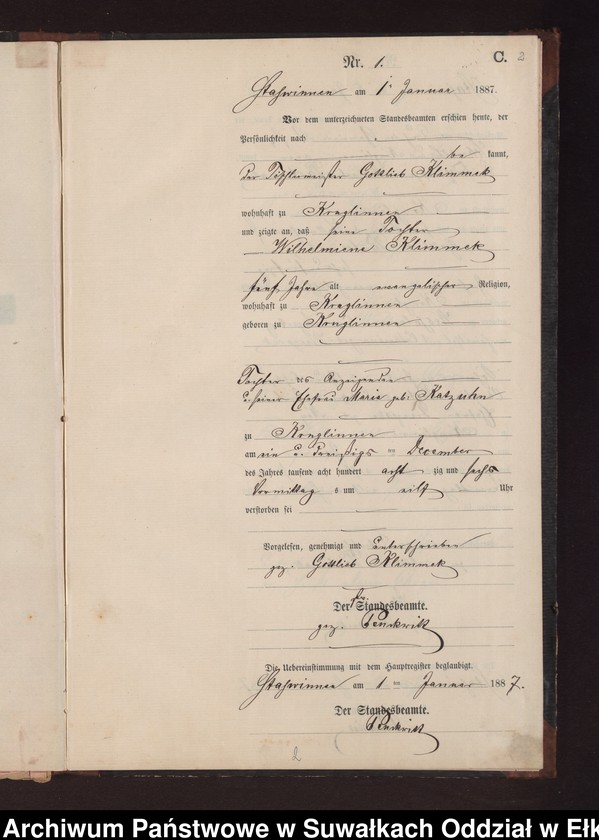 C. 2
Nr. 1.
Staswinnen am 1. Januar 1887.
Vor dem unterzeichneten Standesbeamten erschien heute, der
Persönlichkeit nach
be kannt,
der Tischlermeister Gottlieb Klimmek
wohnhaft zu Kruglinnen
und zeigte an, daß seine Tochter
Wilhelmiene Klimmek
fünf Jahre alt evangelischer Religion,
wohnhaft zu Kruglinnen
geboren zu Kruglinnen
Tochter des Anzeigenden
u. seiner Ehefrau Marie geb: Katzuhn
zu Kruglinnen
am ein u. dreißigs ten December
des Jahres tausend acht hundert acht zig und sechs
Vormittag s um eilf Uhr
verstorben sei
Vorgelesen, genehmigt und unterschrieben
gez. Gottlieb Klimmek
Der Standesbeamte.
gez.
Die Uebereinstimmung mit dem Hauptregister beglaubigt.
Staswinnen am 1 ten Januar 1887.
Der Standesbeamte.
2
Archiwum Państwowe w Suwałkach Oddział w Ełk